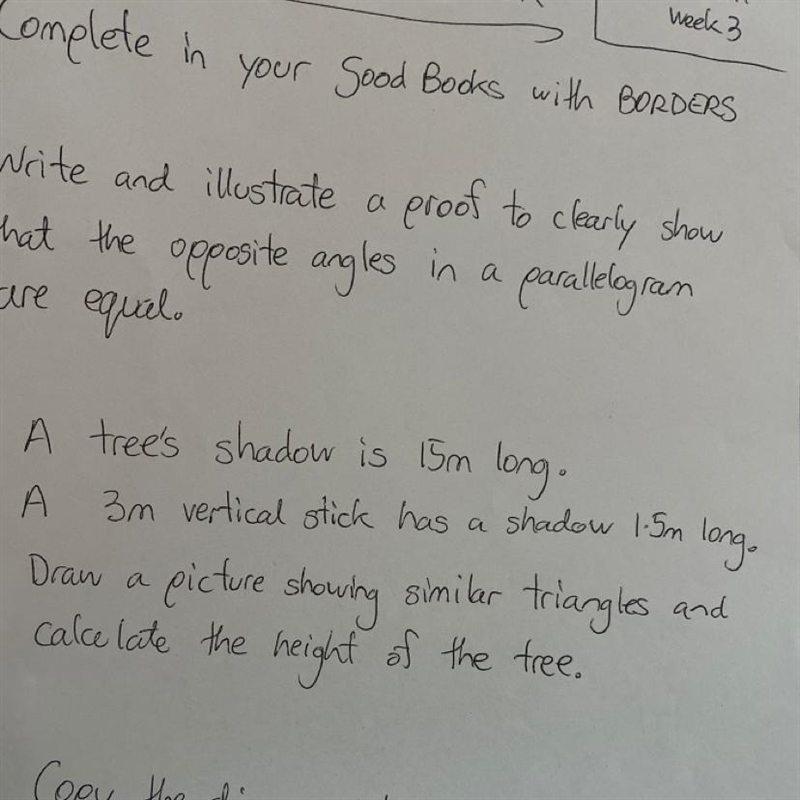 Week 3
Complete in your Good Books with BORDERS
Write and illustrate a proof to clearly show
that the opposite angles in a parallelogram
are equal.
A tree's shadow is 15m long.
A 3m vertical stick has a shadow 1.5m long.
Draw a picture showing similar triangles and
calculate the height of the tree.
Copy the